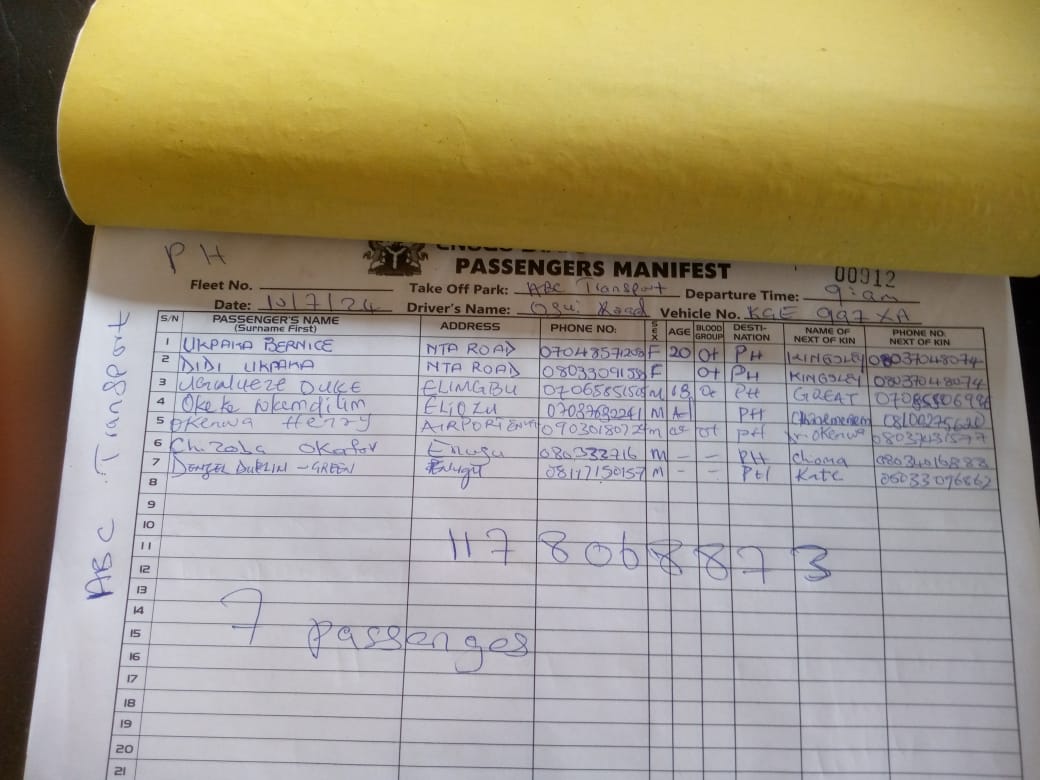 PH
PASSENGERS MANIFEST
00912
Fleet No. Take Off Park: ABC Transport Departure Time: 9:am
Date: 10/7/24 Driver's Name: Osui Road Vehicle No. KGE 997 XA
S/N PASSENGER'S NAME (Surname First) ADDRESS PHONE NO: SEX AGE BLOOD GROUP DESTI-NATION NAME OF NEXT OF KIN PHONE NO. NEXT OF KIN
1 UKPAKA BERNICE NTA ROAD F 20 O+ PH KINGSLEY 08037048074
2 DIDI UKPAKA NTA ROAD F O+ PH KINGSLEY 08037048074
3 DUKE ELIMGBU M PH GREAT
4 Okeke Nkemdilim ELIOZU M PH
5 Okenwa Henry AIRPORT M PH
6 Chizoba Okafor Enugu 080332716 M – – PH Chioma
7 DENZEL DUBLIN – GREEN Enugu 08147150157 M – – PH Kate
8
9
10
11
12
13
14
15
16
17
18
19
20
21
117 8068873
7 passenges
ABC Transport